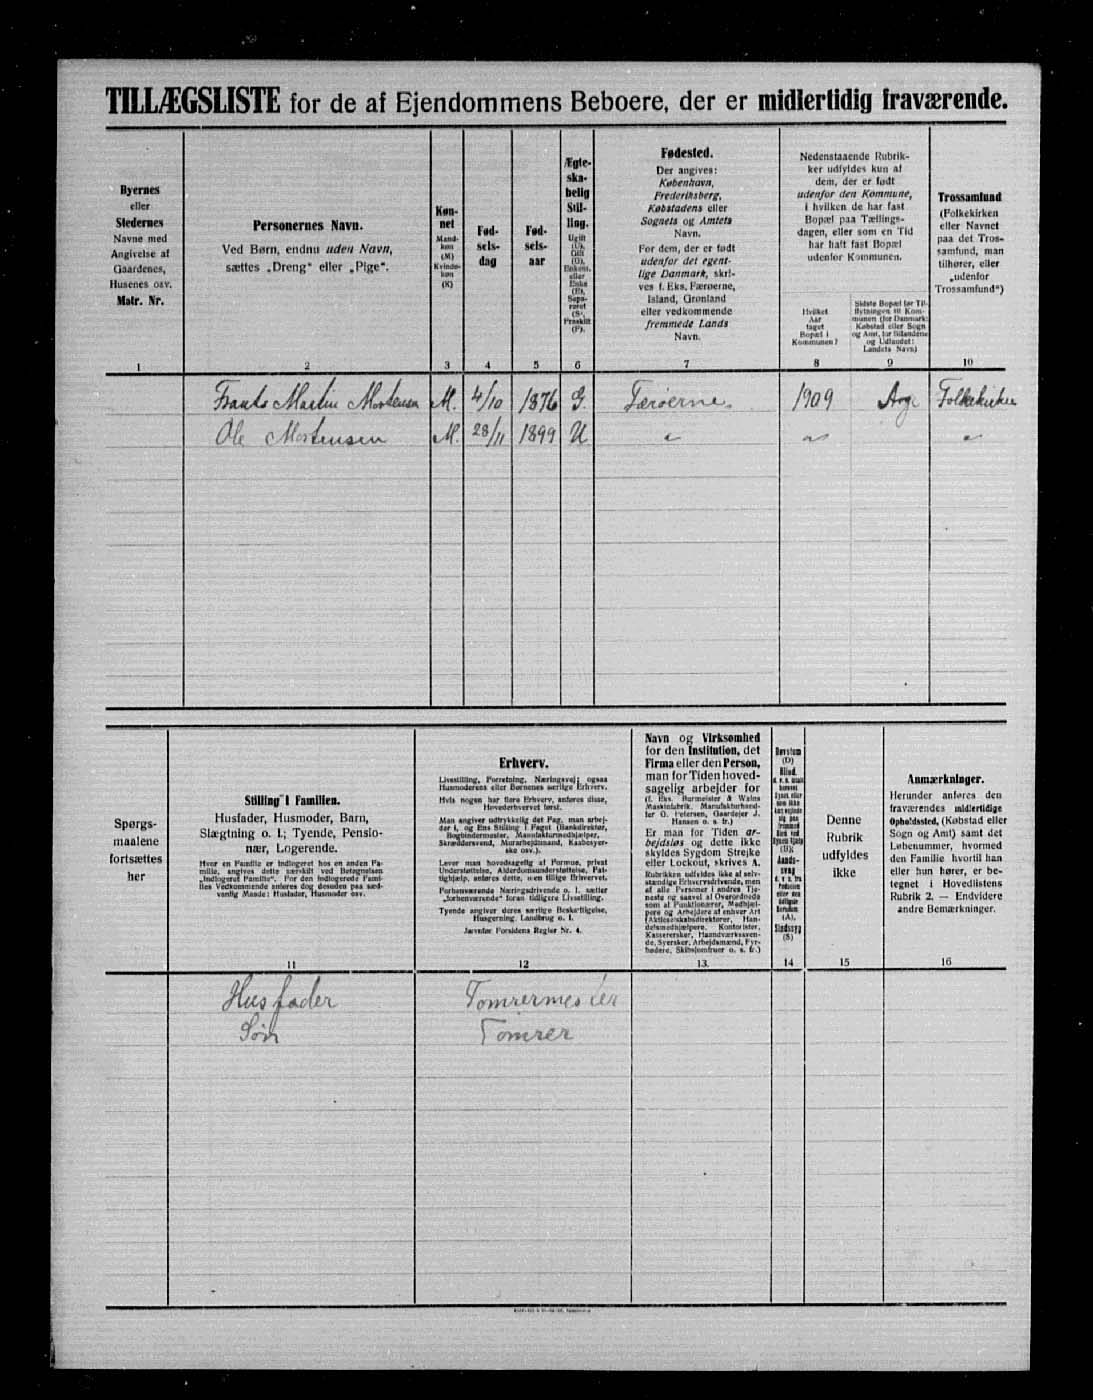 TILLÆGSLISTE for de af Ejendommens Beboere, der er midlertidig fraværende.
Byernes
eller
Stedernes
Navne med
Angivelse af
Gaardenes,
Husenes osv.
Matr. Nr.
Personernes Navn.
Ved Børn, endnu uden Navn,
sættes „Dreng“ eller „Pige“.
Køn-
net
Mand-
køn
(M)
Kvinde-
køn
(K)
Fød-
sels-
dag
Fød-
sels-
aar
Ægte-
ska-
belig
Stil-
ling.
Ugift
(U),
Gift
(G),
Enkem.
eller
Enke
(E),
Sepa-
reret
(S),
Fraskilt
(F).
Fødested.
Der angives:
København,
Frederiksberg,
Købstadens eller
Sognets og Amtets
Navn.
For dem, der er født
udenfor det egent-
lige Danmark, skri-
ves f. Eks. Færøerne,
Island, Grønland
eller vedkommende
fremmede Lands
Navn.
Nedenstaaende Rubrik-
ker udfyldes kun af
dem, der er født
udenfor den Kommune,
i hvilken de har fast
Bopæl paa Tællings-
dagen, eller som en Tid
har haft fast Bopæl
udenfor Kommunen.
Hvilket
Aar
taget
Bopæl i
Kommunen?
Sidste Bopæl før Til-
flytningen til Kom-
munen (for Danmark:
Købstad eller Sogn
og Amt, for Bilandene
og Udlandet:
Landets Navn)
Trossamfund
(Folkekirken
eller Navnet
paa det Tros-
samfund, man
tilhører, eller
„udenfor
Trossamfund“)
1 2 3 4 5 6 7 8 9 10
Frants Martin Mortensen M. 4/10 1876 G. Færøerne. 1909 Folkekirken
Ole Mortensen M. 28/11 1899 U " " "
Spørgs-
maalene
fortsættes
her
Stilling i Familien.
Husfader, Husmoder, Barn,
Slægtning o. l.; Tyende, Pensio-
nær, Logerende.
Hvor en Familie er indlogeret hos en anden Fa-
milie, angives dette særskilt ved Betegnelsen
„Indlogeret Familie“. For den indlogerede Fami-
lies Vedkommende anføres dog desuden paa sæd-
vanlig Maade: Husfader, Husmoder osv.
Erhverv.
Livsstilling, Forretning, Næringsvej; ogsaa
Husmoderens eller Børnenes særlige Erhverv.
Hvis nogen har flere Erhverv, anføres disse,
Hovederhvervet først.
Man angiver udtrykkelig det Fag, man arbej-
der i, og Ens Stilling i Faget (Bankdirektør,
Bogbindermester, Manufakturmedhjælper,
Skræddersvend, Murarbejdsmand, Kaabesyer-
ske osv.).
Lever man hovedsagelig af Formue, privat
Understøttelse, Alderdomsunderstøttelse, Fat-
tighjælp, anføres dette, o. en tillige Erhvervet.
Forhenværende Næringsdrivende o. l. sætter
„forhenværende“ foran tidligere Livsstilling.
Tyende angiver deres særlige Beskæftigelse,
Husgerning, Landbrug o. l.
Jævnfør Forsidens Regler Nr. 4.
Navn og Virksomhed
for den Institution, det
Firma eller den Person,
man for Tiden hoved-
sagelig arbejder for
(f. Eks. Burmeister & Wains
Maskinfabrik, Manufakturhand-
ler O. Petersen, Gaardejer J.
Hansen o. s. fr.)
Er man for Tiden ar-
bejdsløs og dette ikke
skyldes Sygdom Strejke
eller Lockout, skrives A.
Rubrikken udfyldes ikke af selv-
stændige Erhvervsdrivende, men
af alle Personer i andres Tje-
neste og saavel af Overordnede
som af Funktionærer, Medhjæl-
pere og Arbejdere af enhver Art
(Aktieselskabsdirektører, Han-
delsmedhjælpere, Kontorister,
Kassererske, Haandværkssven-
de, Syersker, Arbejdsmænd, Fyr-
bødere, Skibsjomfruer o. s. fr.)
Døvstum
(D)
Blind,
Aands-
svag
(A),
Sindssyg
(S)
Denne
Rubrik
udfyldes
ikke
Anmærkninger.
Herunder anføres den
fraværendes midlertidige
Opholdssted, (Købstad eller
Sogn og Amt) samt det
Løbenummer, hvormed
den Familie hvortil han
eller hun hører, er be-
tegnet i Hovedlistens
Rubrik 2. — Endvidere
andre Bemærkninger.
11 12 13. 14 15 16
Husfader Tomrermester
Søn Tomrer